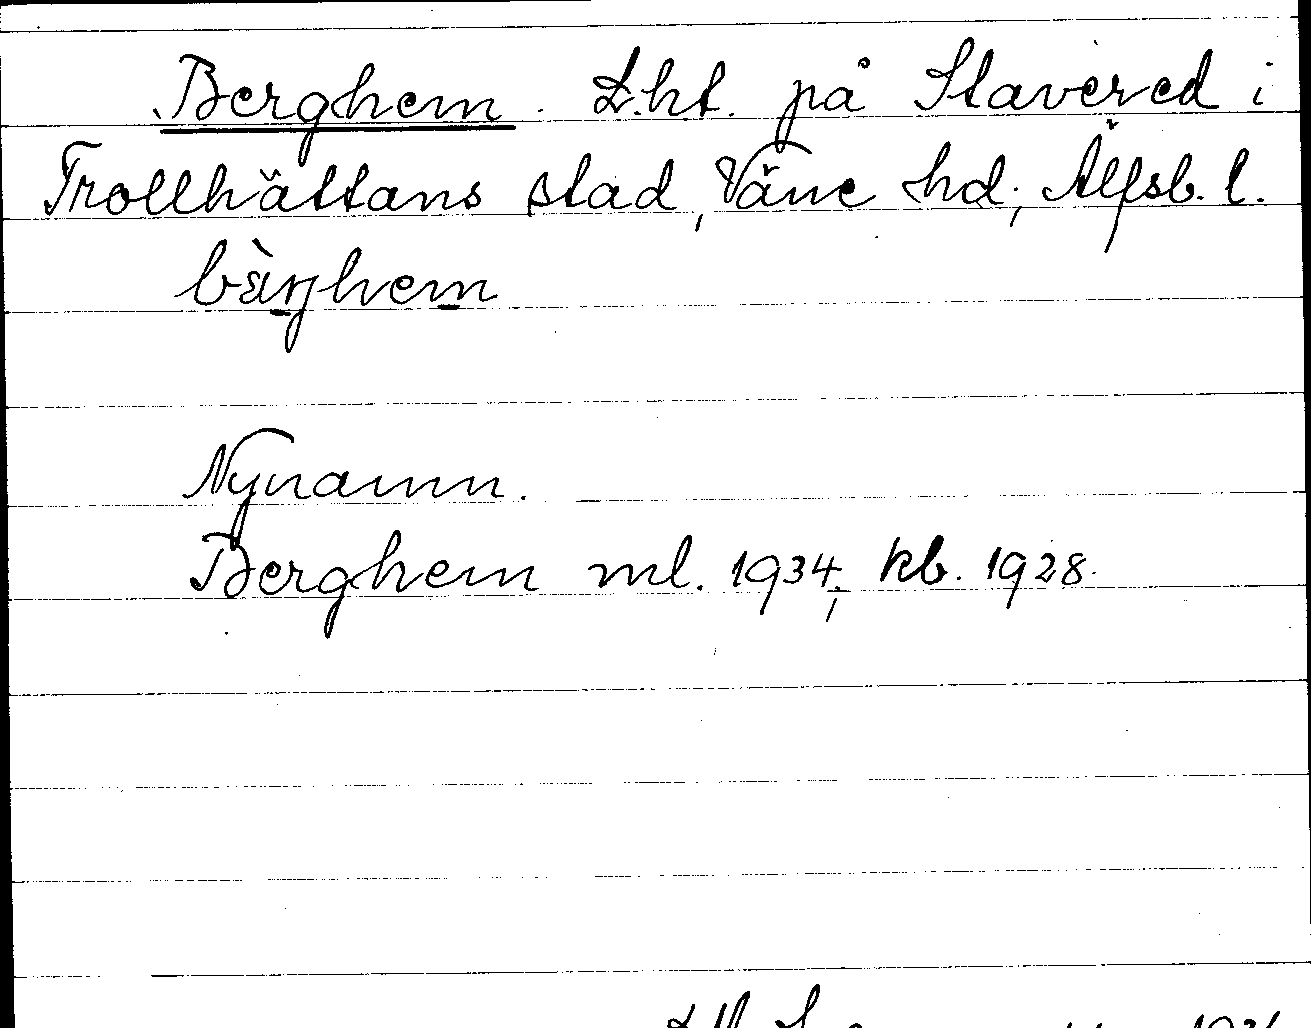 Berghem. Lht. på Stavered i
Trollhättans stad, Väne hd; Älfsb. l.
bärjhem
Nynamn.
Berghem ml. 1934; kb. 1928.